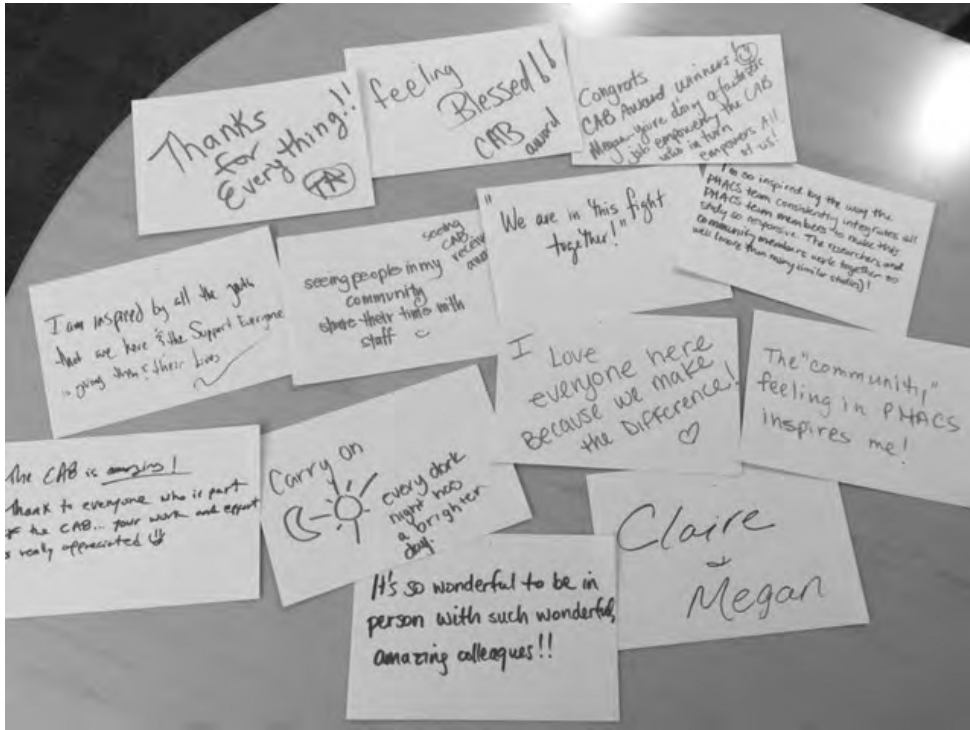 Thanks
for
Everything!!
TA
feeling
Blessed!!
CAB
award
Congrats
CAB Award winners!
Megan - you're doing a fantastic
job empowering the CAB
who in turn
empowers All
of us!
I am inspired by all the
that are here & the Support Everyone
giving them & their Lives
seeing people in my
community
share their time with
staff
seeing
CAB
receive
award
"We are in this fight
together!"
I'm so inspired by the way the
PHACS team consistently integrates all
PHACS team members to make this
study so responsive. The researchers and
community members work together so
well (more than many similar studies)!
I Love
everyone here
Because we make
the Difference!
The "community"
feeling in PHACS
inspires me!
The CAB is amazing!
Thank to everyone who is part
of the CAB... your work and effort
is really appreciated
Carry on
every dark
night has
a brighter
day.
It's so wonderful to be in
person with such wonderful,
amazing colleagues!!
Claire
Megan